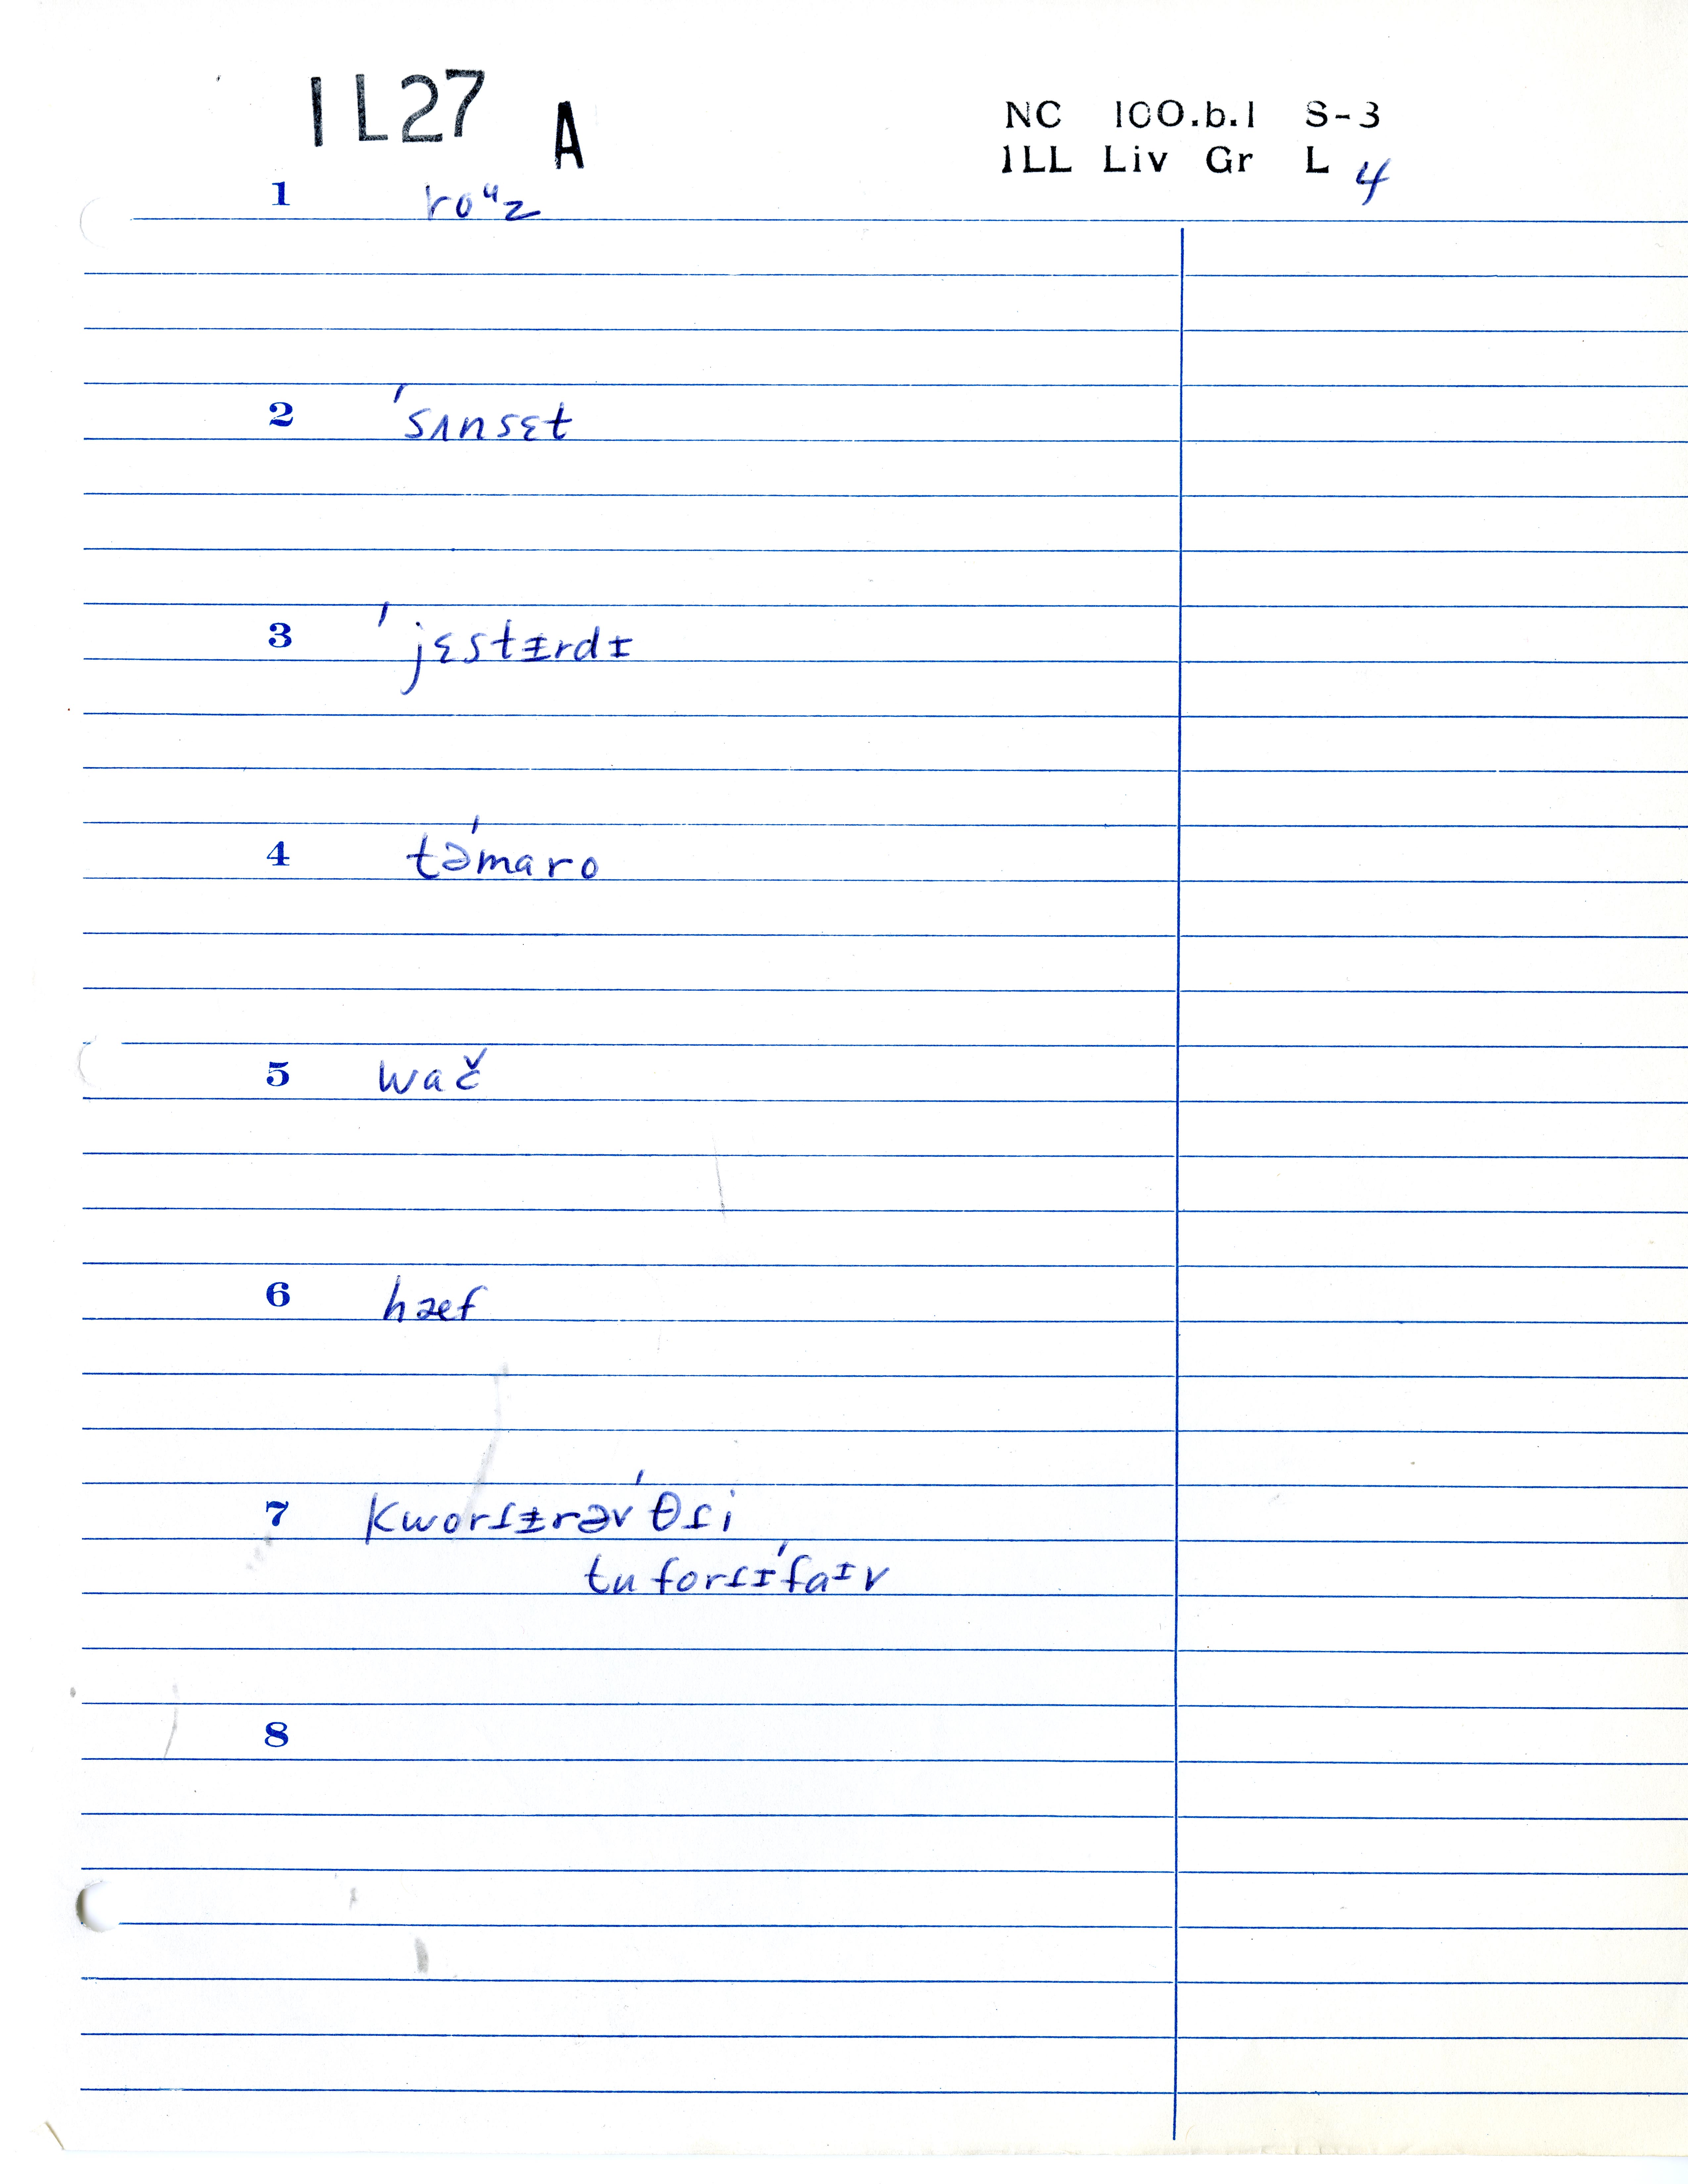 IL27 A
NC 100.b.1 S-3
ILL Liv Gr L 4
1 roᶸz
2 ˈsʌnsɛt
3 ˈjɛstɪrdɪ
4 təˈmaro
5 wač
6 hæf
7 kworɾɪrəvˈθɾi
tu forɾɪˈfaᶦv
8